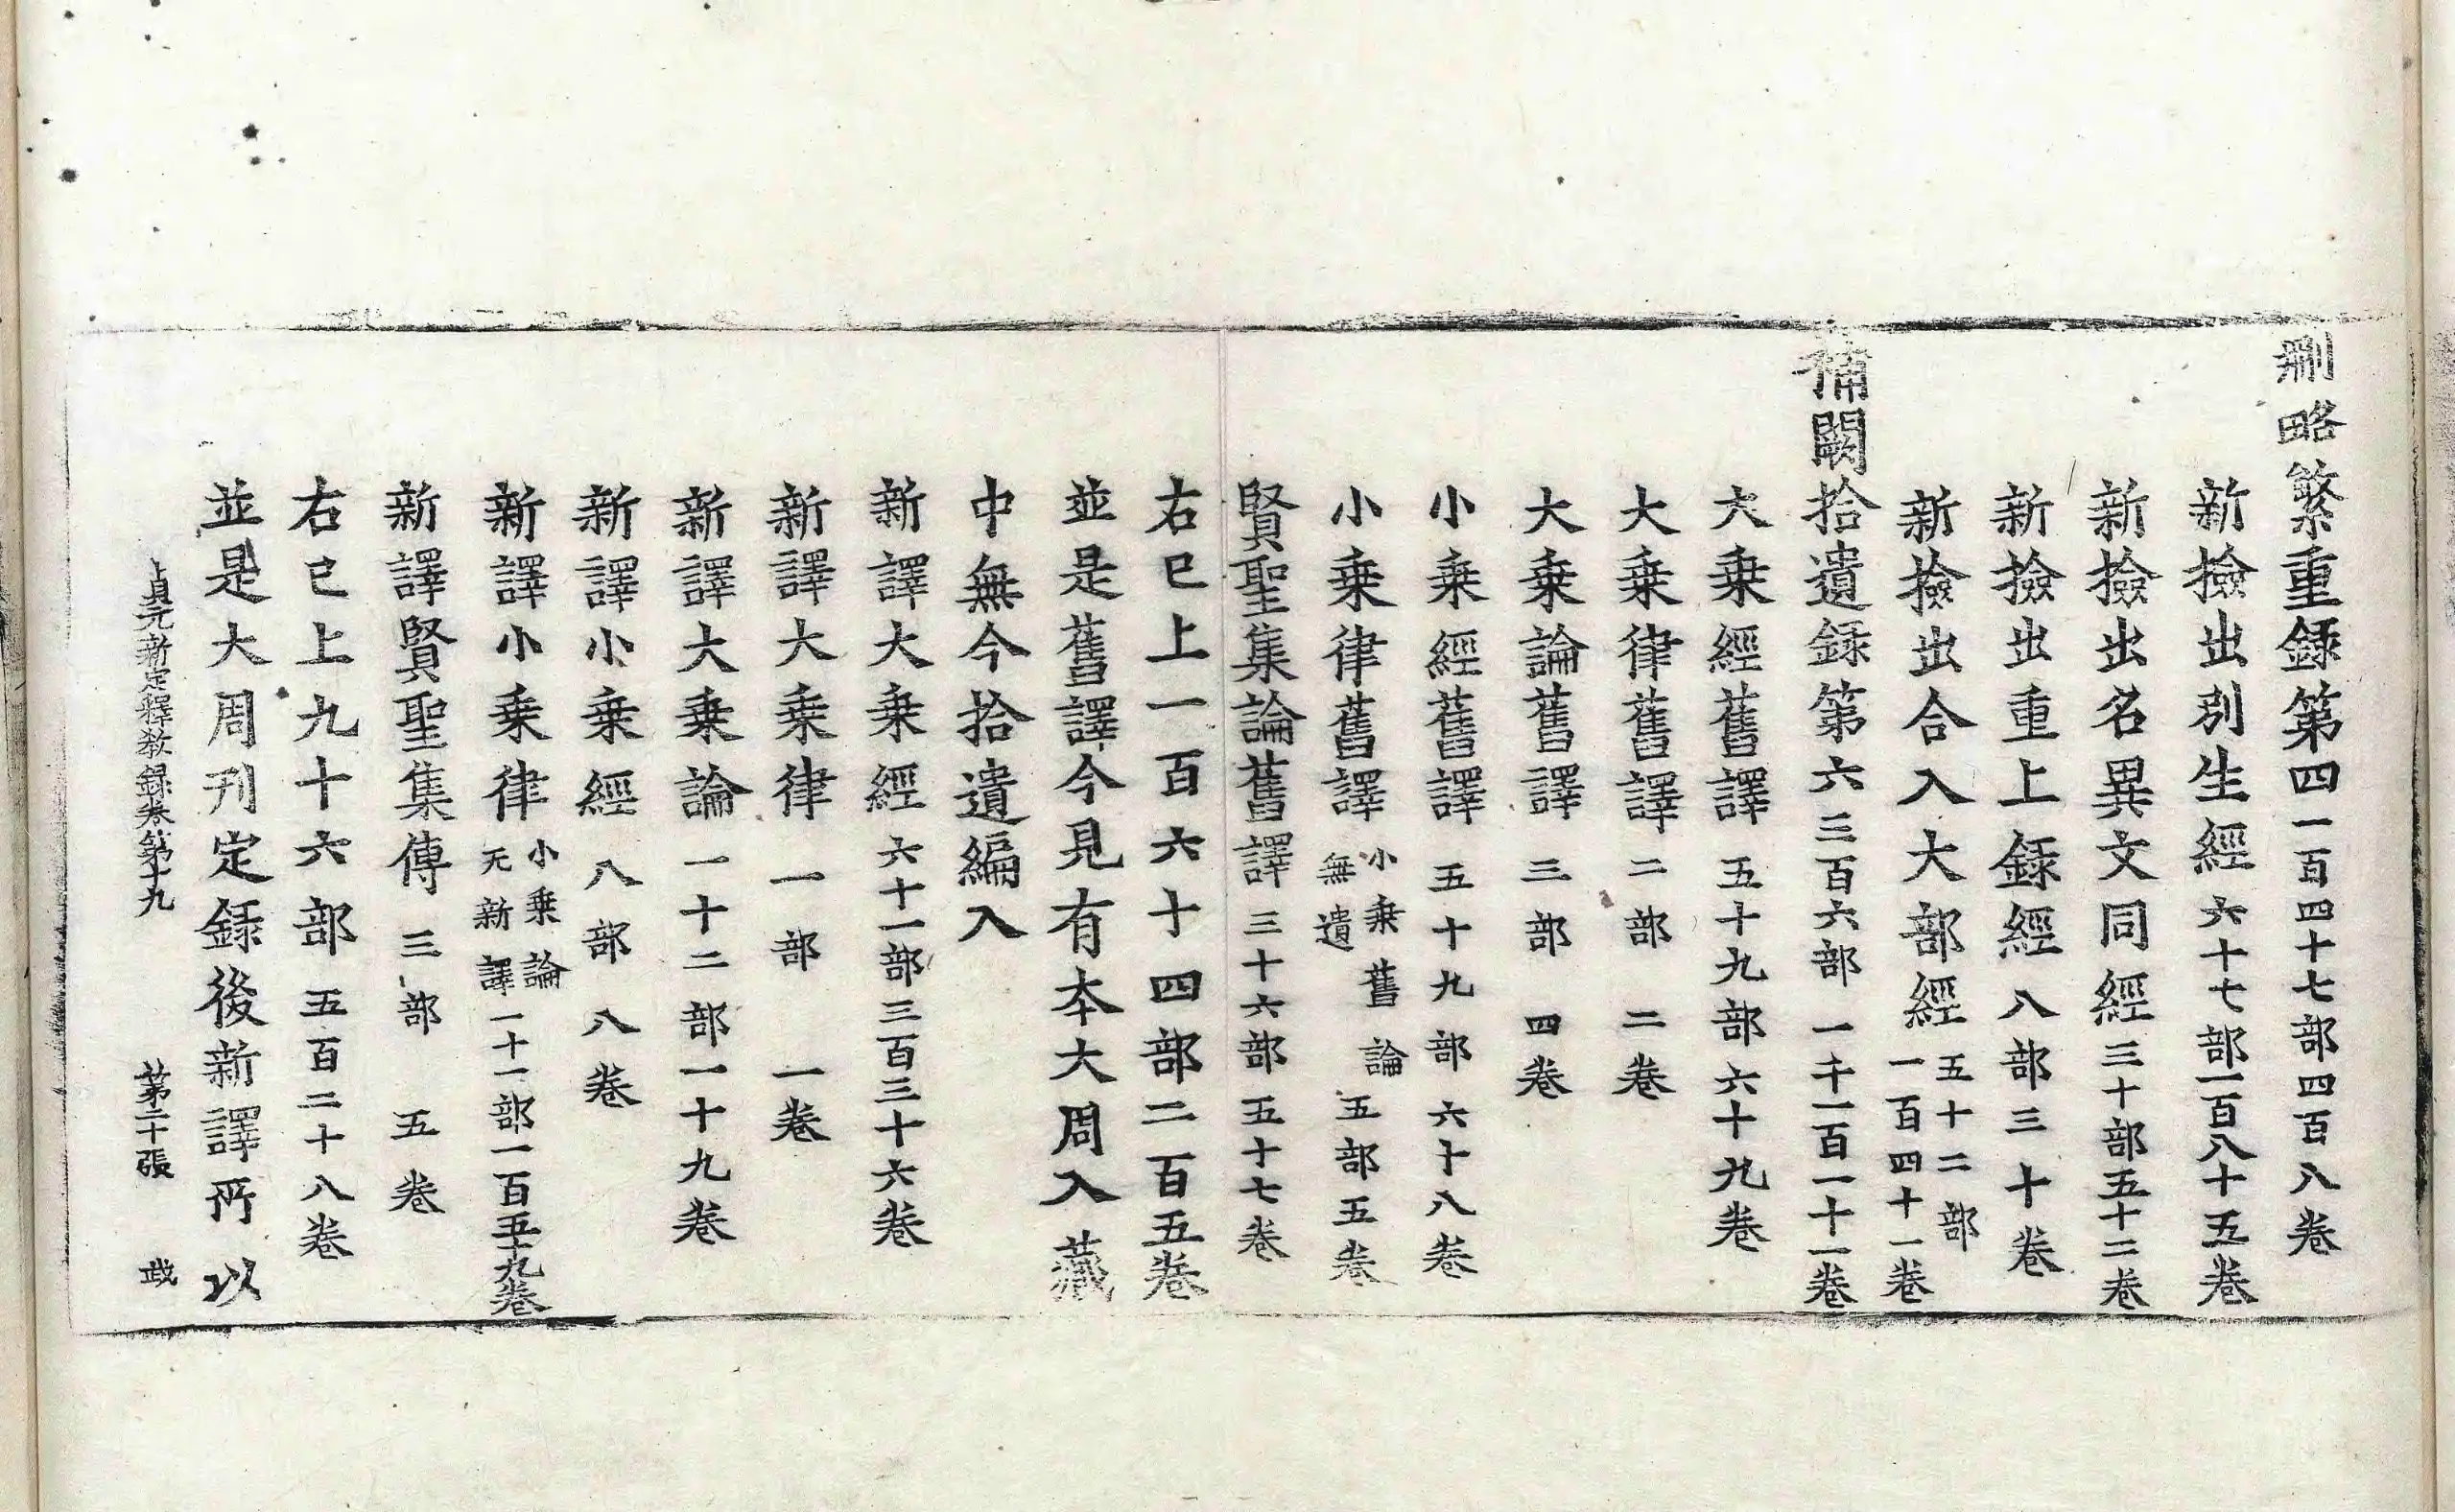 刪略繁重録第四一百四十七部四百八卷
新撿出別生經六十七部一百八十五卷
新撿出名異文同經三十部五十二卷
新撿出重上録經八部三十卷
新撿出合入大部經五十二部一百四十一卷
補闕拾遺録第六三百六部一千一百一十一卷
大乗經舊譯五十九部六十九卷
大乗律舊譯二部二卷
大乗論舊譯三部四卷
小乗經舊譯五十九部六十八卷
小乗律舊譯小乗舊論無遺五部五卷
賢聖集論舊譯三十六部五十七卷
右已上一百六十四部二百五卷
並是舊譯今見有本大周入藏
中無今拾遺編入
新譯大乗經六十一部三百三十六卷
新譯大乗律一部一卷
新譯大乗論一十二部一十九卷
新譯小乗經八部八卷
新譯小乗律小乗論无新譯一十一部一百五十九卷
新譯賢聖集傳三部五卷
右已上九十六部五百二十八卷
並是大周刋定録後新譯所以
貞元新定釋教録卷第十九 第二十張 㦯